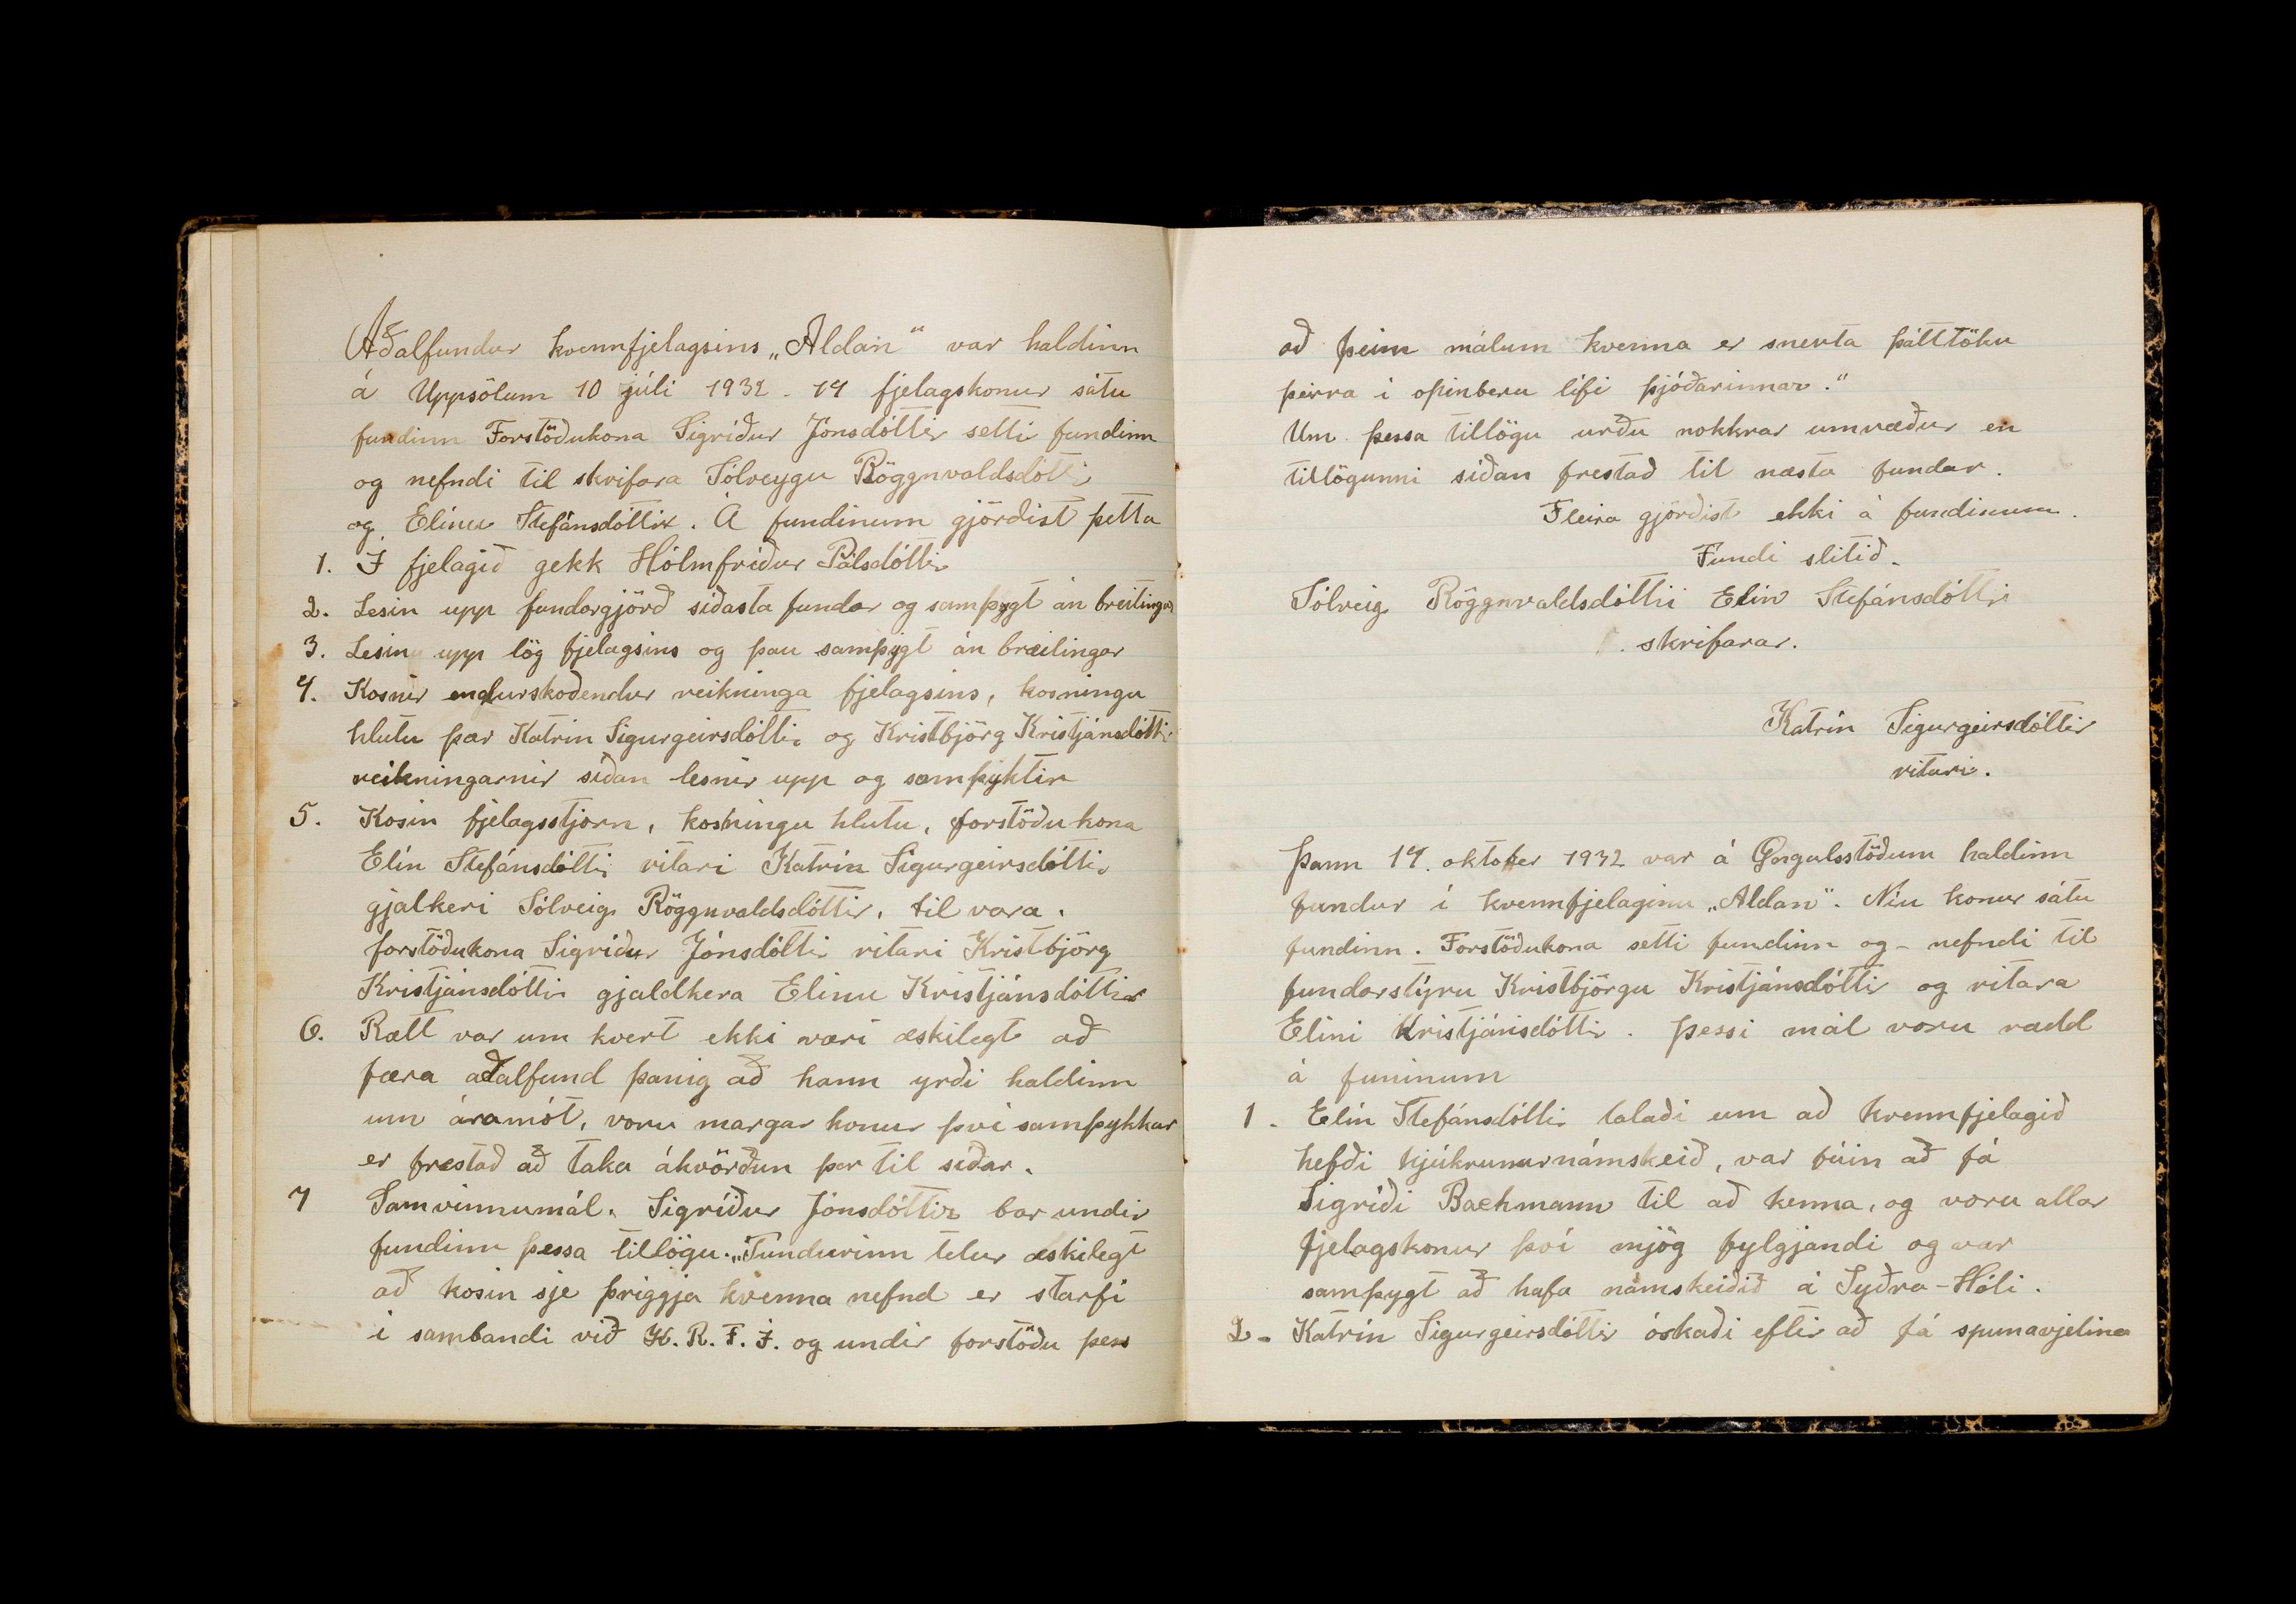 Aðalfundur kvennfjelagsins „Aldan" var haldinn
á Uppsölum 10 júli 1932. 14 fjelagskonur sátu
fundinn Forstöðukona Sigríður Jónsdóttir setti fundinn
og nefndi til skrifara Sólveygu Röggnvaldsdótti
og Elínu Stefánsdóttir. Á fundinum gjörðist þetta
1. I fjelagið gekk Hólmfríður Pálsdóttir
2. Lesin upp fundargjörð síðasta fundar og samþygt án breitingar
3. Lesin upp lög fjelagsins og þau samþygt án breitingar
4. Kosnir endurskoðendur reikninga fjelagsins, kosningu
hlutu þær Katrín Sigurgeirsdóttir og Kristbjörg Kristjánsdóttir
reikningarnir síðan lesnir upp og samþyktir
5. Kosin fjelagsstjórn, kosningu hlutu, forstöðukona
Elín Stefánsdóttir ritari Katrín Sigurgeirsdóttir
gjalkeri Sólveig Röggnvaldsdóttir, til vara.
forstöðukona Sigríður Jónsdóttir ritari Kristbjörg
Kristjánsdóttir gjaldkera Elinu Kristjánsdóttir
6. Rætt var um hvert ekki væri æskilegt að
færa aðalfund þanig að hann yrði haldinn
um áramót, voru margar konur því samþykkar
er frestað að taka ákvörðun þar til síðar.
7 Samvinnumál. Sigríður Jónsdóttir bar undir
fundinn þessa tillögu. „Fundurinn telur æskilegt
að kosin sje þriggja kvenna nefnd er starfi
í sambandi við K. R. F. Í. og undir forstöðu þess
að þeim málum kvenna er snerta þátttöku
þeirra í opinberu lífi þjóðarinnar."
Um þessa tillögu urðu nokkrar umræður en
tillögunni síðan frestað til næsta fundar.
Fleira gjörðist ekki á fundinum.
Fundi slitið.
Sólveig Röggnvaldsdóttir Elín Stefánsdóttir
skrifarar.
Katrín Sigurgeirsdóttir
ritari.
Þann 14. oktober 1932 var á Gngulsstöðum haldinn
fundur í kvennfjelaginu „Aldan". Níu konur sátu
fundinn. Forstöðukona setti fundinn og - nefndi til
fundarstýru Kristbjörgu Kristjánsdóttir og ritara
Elíni Kristjánsdóttir. Þessi mál voru rædd
á funinum
1. Elín Stefánsdóttir talaði um að kvennfjelagið
hefði hjúkrunarnámskeið, var fúin að fá
Sigríði Bachmann til að kenna, og voru allar
fjelagskonur því mjög fylgjandi og var
samþygt að hafa námskeiðið á Syðra-Hóli.
2. Katrín Sigurgeirsdóttir óskaði eftir að fá spunavjelina